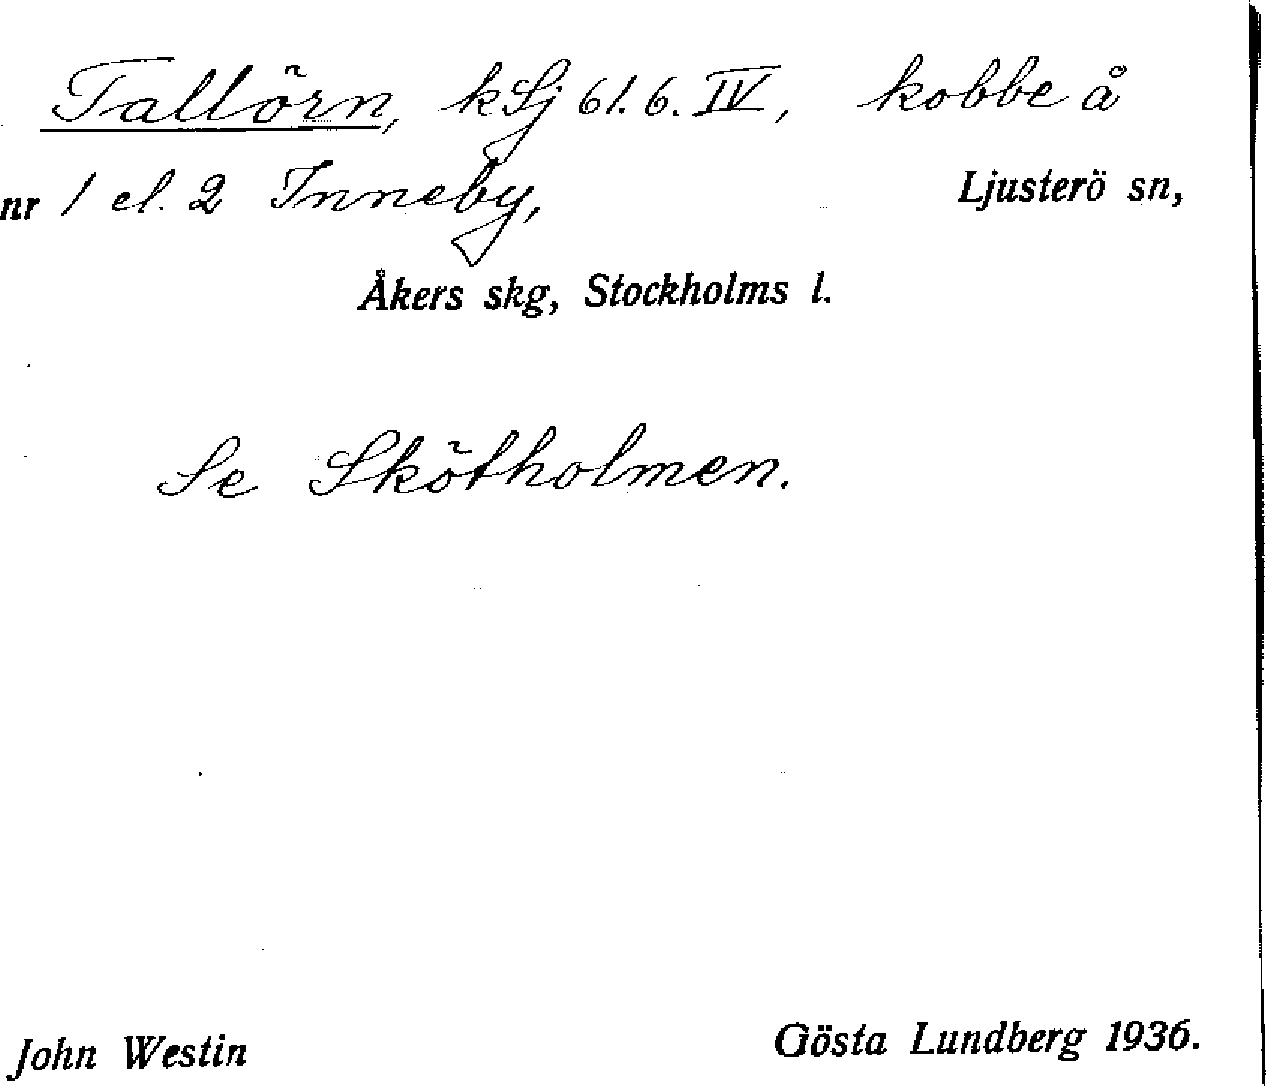 Tallörn, kSj 61.6.IV, kobbe å
nr 1 el. 2 Inneby, Ljusterö sn,
Åkers skg, Stockholms l.
Se Skötholmen.
John Westin Gösta Lundberg 1936.